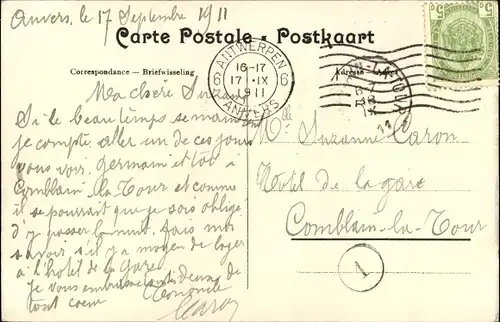 Anvers, le 17 Septembre 1911
5 5
Carte Postale - Postkaart
Correspondance — Briefwisseling
Adresse
ANTWERPEN
6 16-17 6
17 IX
1911
ANVERS
11
Ma chère Suzanne
Si le beau temps se maintient
je compte aller un de ces jours
vous voir, germain et toi à
Comblain la Tour et comme
il se pourrait que je sois obligé
d'y passer la nuit, fais moi
savoir s'il y a moyen de loger
à l'hôtel de la Gare.
Je vous embrasse tous deux de
tout coeur
Caron
Mlle Suzanne Caron
Hôtel de la gare
Comblain-la-Tour
1